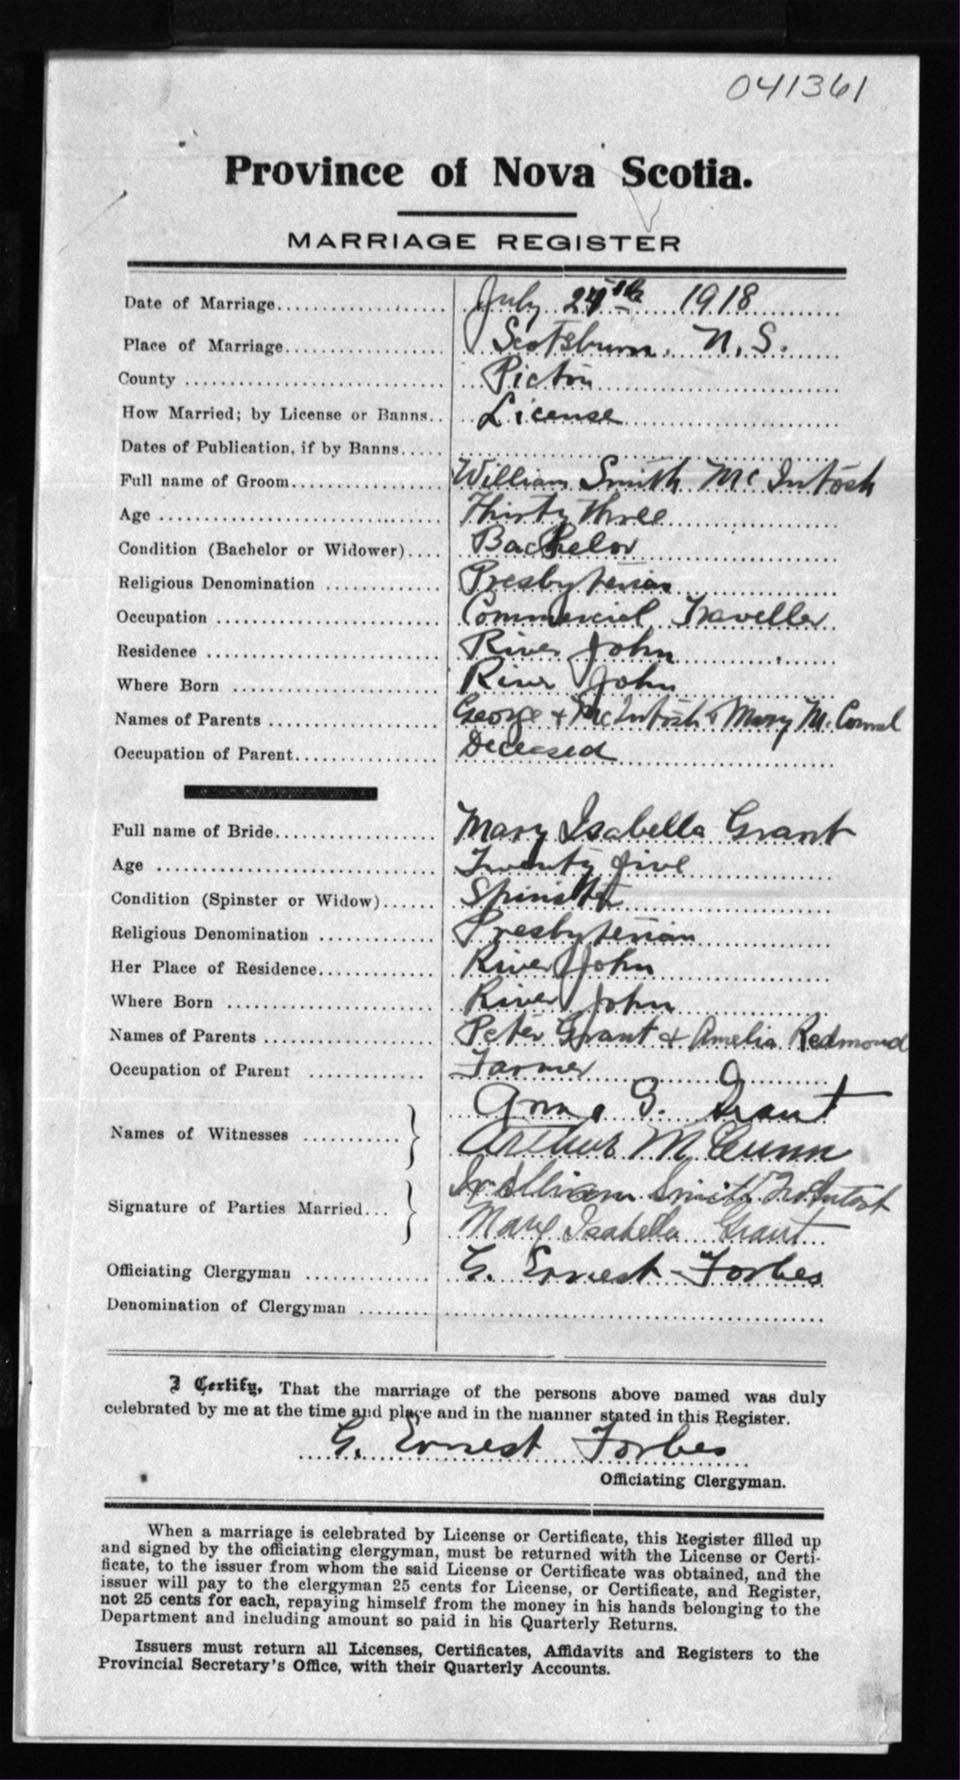 041361
Province of Nova Scotia.
MARRIAGE REGISTER
Date of Marriage July 24th 1918
Place of Marriage Scotsburn, N.S.
County Pictou
How Married; by License or Banns License
Dates of Publication, if by Banns
Full name of Groom William Smith McIntosh
Age Thirty three
Condition (Bachelor or Widower) Bachelor
Religious Denomination Presbyterian
Occupation Commercial Traveller
Residence River John
Where Born River John
Names of Parents George & McIntosh & Mary
Occupation of Parent Deceased
Full name of Bride Mary Isabella Grant
Age Twenty five
Condition (Spinster or Widow) Spinster
Religious Denomination Presbyterian
Her Place of Residence River John
Where Born River John
Names of Parents Peter Grant & Amelia Redmond
Occupation of Parent Farmer
Anna G. Grant
Names of Witnesses
Arthur
William Smith McIntosh
Signature of Parties Married
Mary Isabella Grant
Officiating Clergyman G. Ernest Forbes
Denomination of Clergyman
I Certify, That the marriage of the persons above named was duly
celebrated by me at the time and place and in the manner stated in this Register.
G. Ernest Forbes
Officiating Clergyman.
When a marriage is celebrated by License or Certificate, this Register filled up
and signed by the officiating clergyman, must be returned with the License or Certi-
ficate, to the issuer from whom the said License or Certificate was obtained, and the
issuer will pay to the clergyman 25 cents for License, or Certificate, and Register,
not 25 cents for each, repaying himself from the money in his hands belonging to the
Department and including amount so paid in his Quarterly Returns.
Issuers must return all Licenses, Certificates, Affidavits and Registers to the
Provincial Secretary's Office, with their Quarterly Accounts.